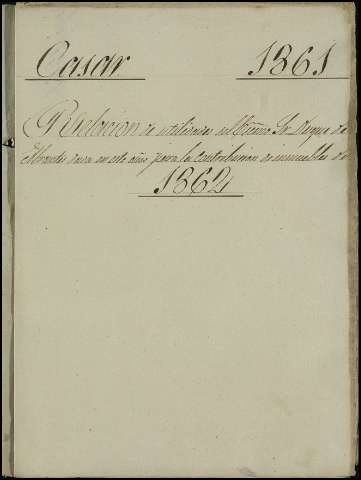 Casar 1861
Relacion de utilidades del Excmo Sr Duque de
Abrantes dada en este año para la Contribucion de inmuebles de
1862